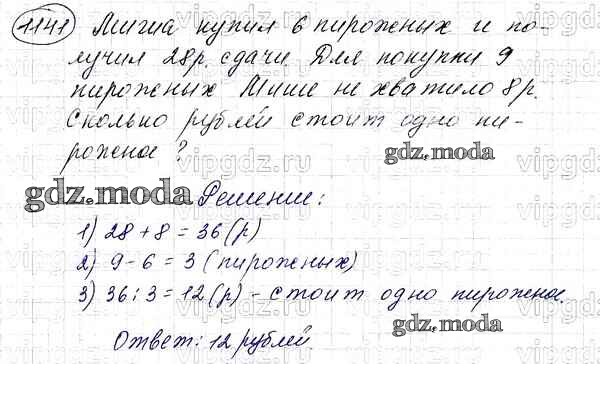 1141 Миша купил 6 пирожных и по-
лучил 28 р. сдачи. Для покупки 9
пирожных Мише не хватило 8 р.
Сколько рублей стоит одно пи-
рожное?
gdz.moda
gdz.moda Решение:
1) 28 + 8 = 36 (р)
2) 9 - 6 = 3 (пирожных)
3) 36 : 3 = 12 (р) - стоит одно пирожное.
gdz.moda
Ответ: 12 рублей.
vipgdz.ru